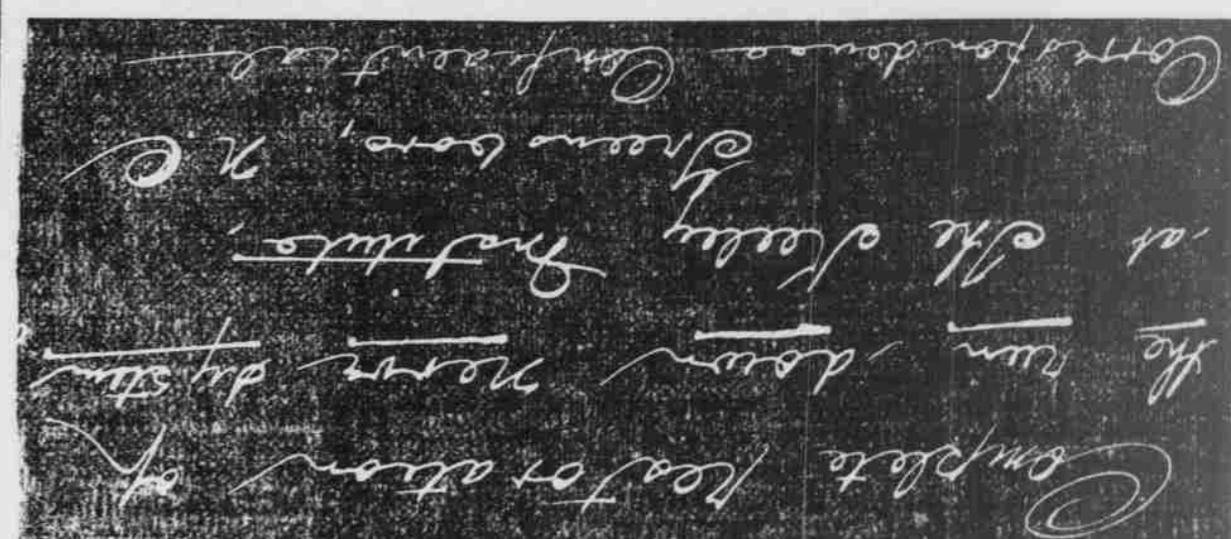 Complete restoration of
the run down nerve system
at The Keeley Institute,
Greensboro, N.C
Correspondence Confidential